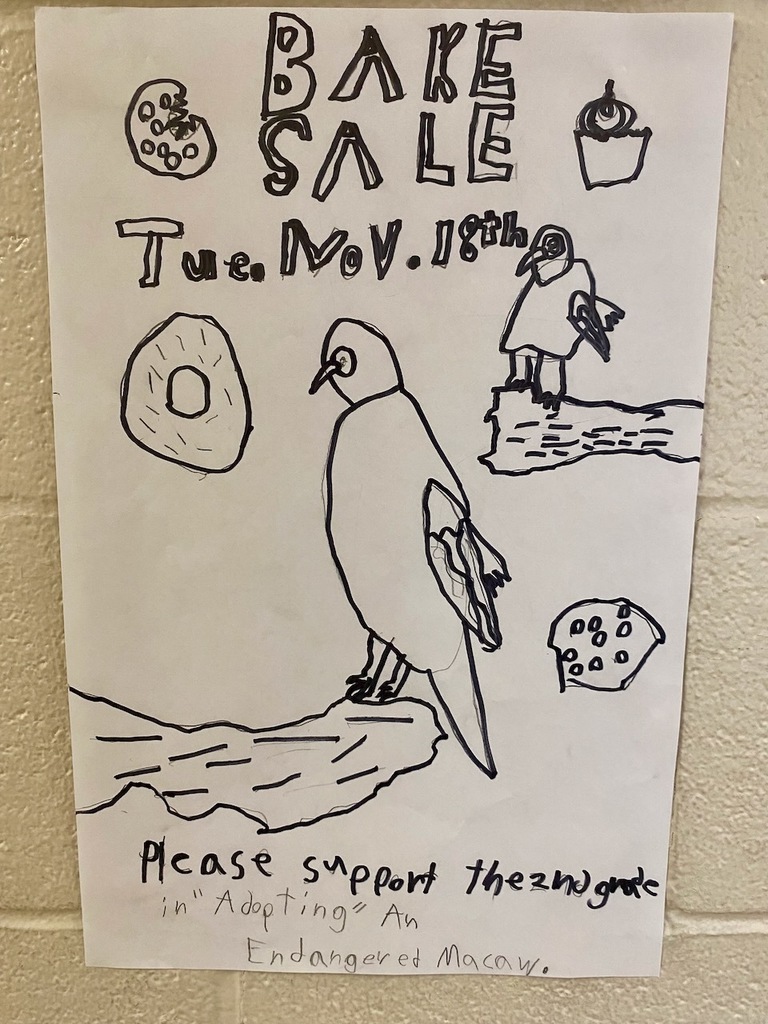 BAKE
SALE
Tue. Nov. 18th
Please support the 2nd grade
in "Adopting" An
Endangered Macaw.